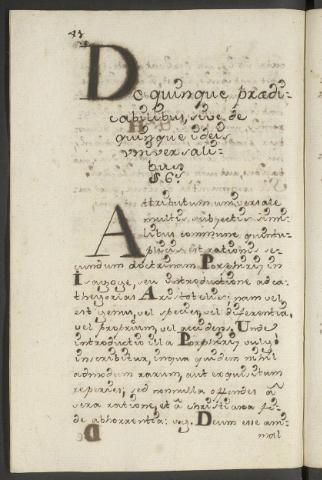 De quinque prædi-
cabilibus, sive de
quinque ideis
vniversali-
bus
§. 6.
Attributum universale
multis subjectis simi-
libus commune quintu-
plicis est rationis se-
cundum doctrinam Porphirij in
Isagoge, seu introductione ad ca-
thegorias Aristotelis; nam vel
est genus, vel species, vel differentia,
vel proprium, vel accidens. Unde
introductio illa Porphirij vulgò
inscribitur, in qua quidem nihil
admodum rarum, aut exquisitum
reperies, sed nonnulla offendes à
vera ratione, et à christiana fi-
de abhorrentia: v.g. Deum esse ani-
mal